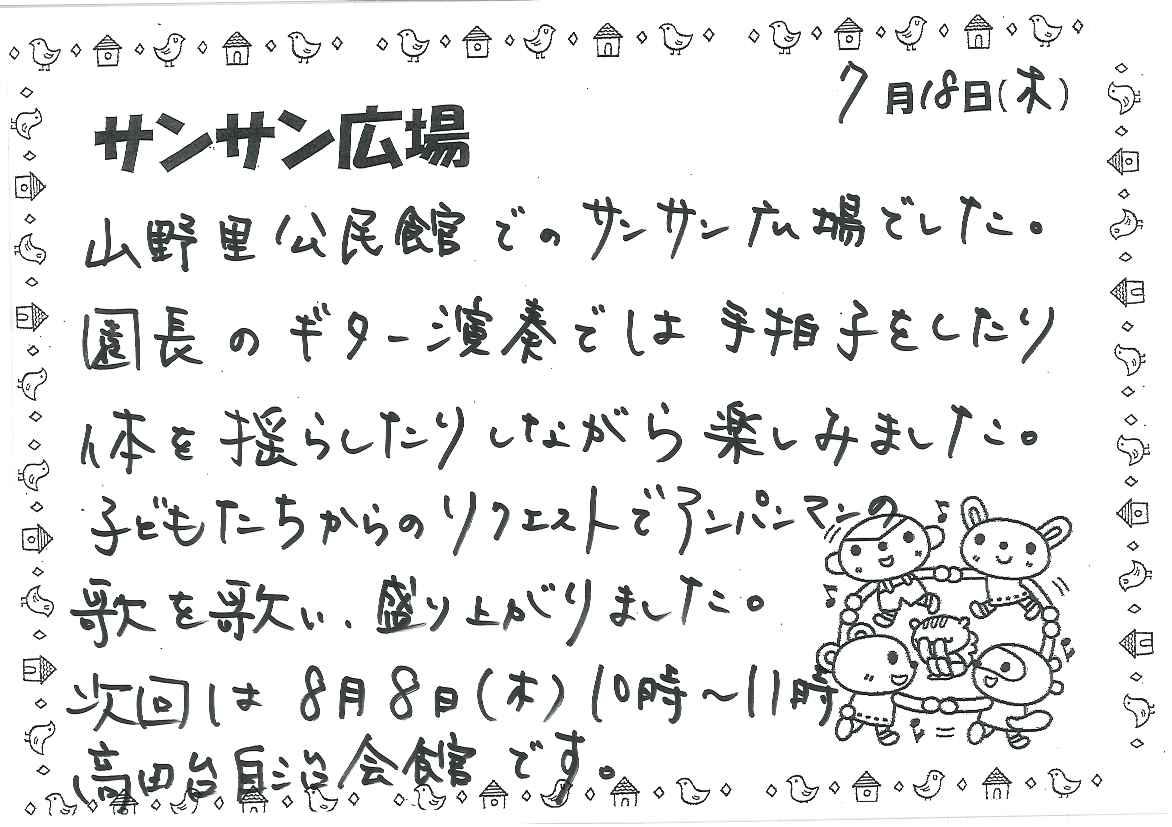 7月18日(木)
サンサン広場
山野里公民館でのサンサン広場でした。
園長のギター演奏では手拍子をしたり
体を揺らしたりしながら楽しみました。
子どもたちからのリクエストでアンパンマンの
歌を歌い、盛り上がりました。
次回は8月8日(木)10時~11時
高田台自治会館です。